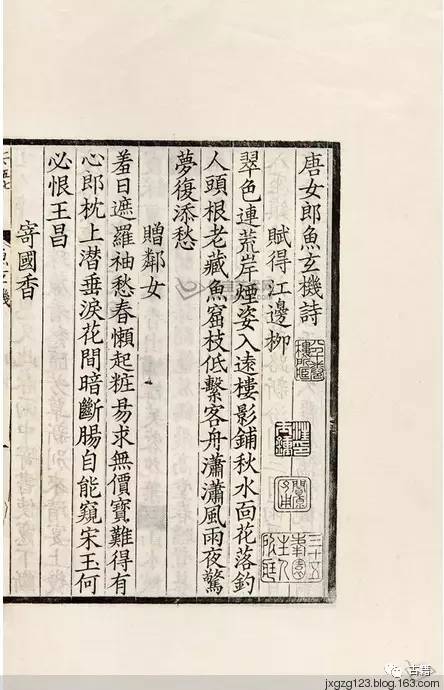 唐女郎魚玄機詩
賦得江邊柳
翠色連荒岸煙姿入遠樓影鋪秋水面花落釣
人頭根老藏魚窟枝低繫客舟瀟瀟風雨夜驚
夢復添愁
贈鄰女
羞日遮羅袖愁春懶起粧易求無價寶難得有
心郎枕上潛垂淚花間暗斷腸自能窺宋玉何
必恨王昌
寄國香
魚玄機
古籍
jxgzg123.blog.163.com